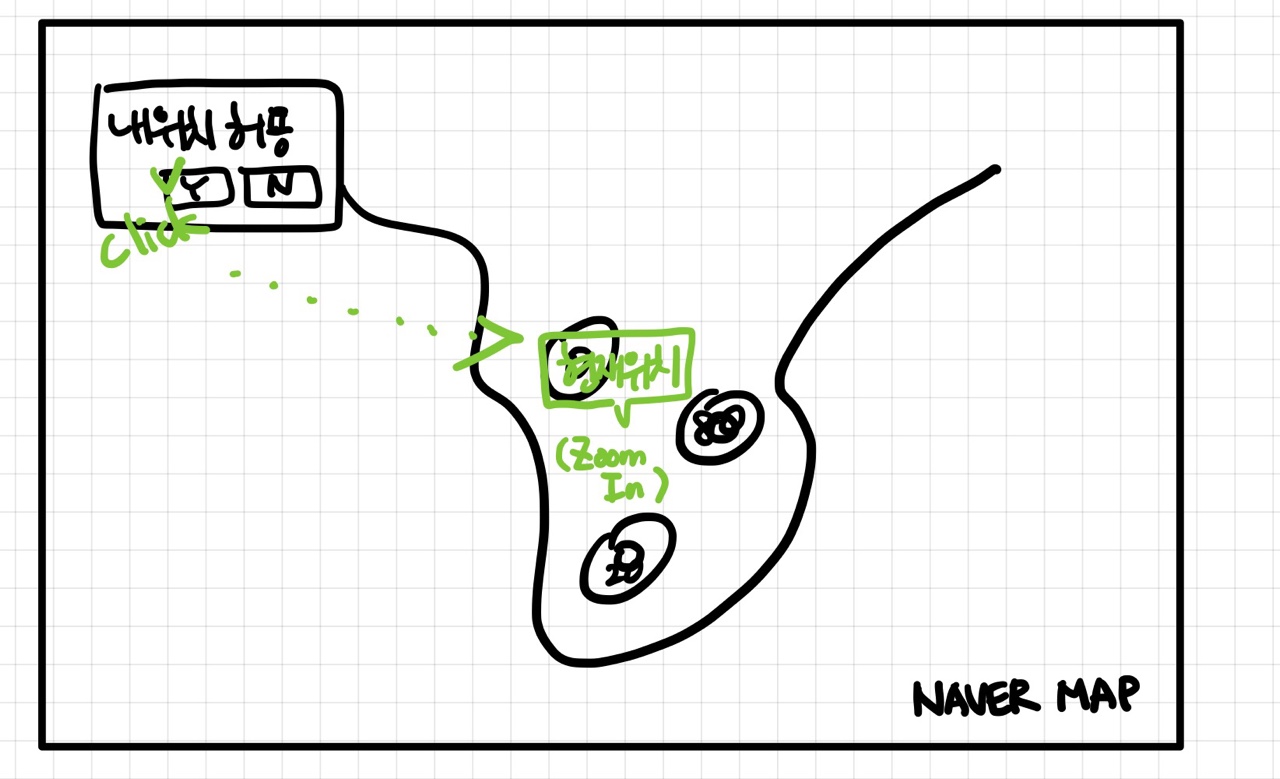 내위치 허용
Y N
click
현재위치
(Zoom
In)
NAVER MAP